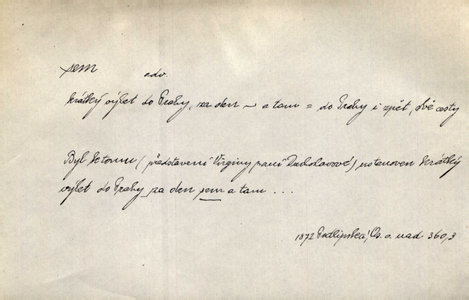 sem adv.
krátký výlet do Prahy, za den ~ a tam = do Prahy i zpět, obě cesty
Byl k tomu (představení Virginy, paní) ustanoven krátký
výlet do Prahy, za den sem a tam ...
1872 Podlipská, Os. a nad. 360,3